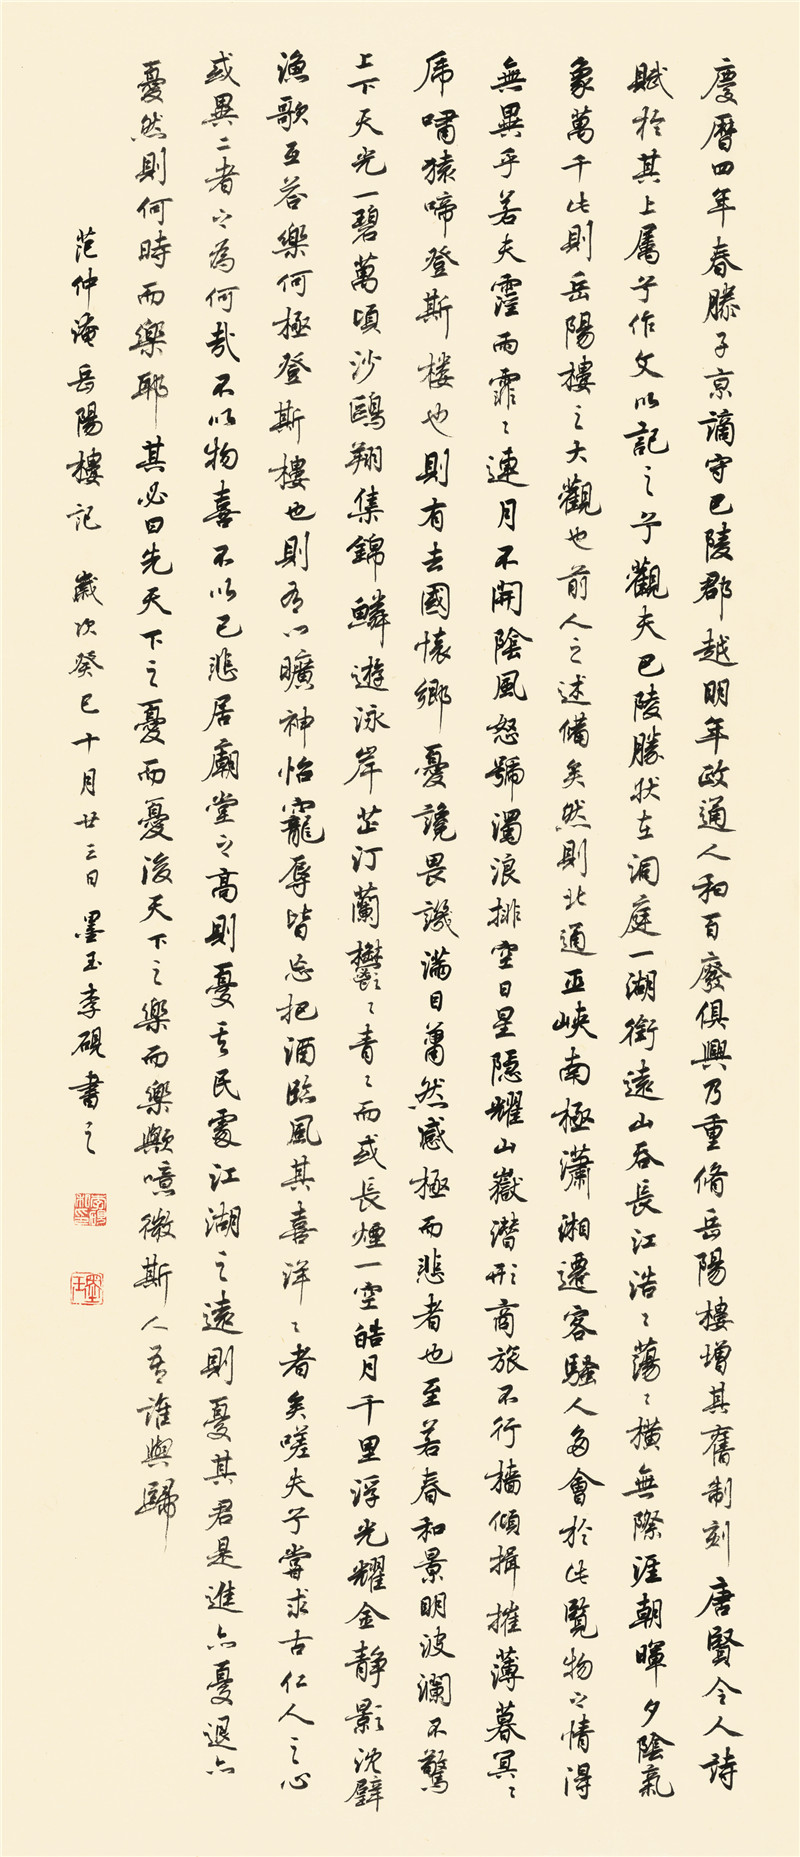 慶曆四年春滕子京謫守巴陵郡越明年政通人和百廢俱興乃重脩岳陽樓增其舊制刻唐賢令人詩
賦於其上屬予作文以記之予觀夫巴陵勝狀在洞庭一湖銜遠山吞長江浩浩蕩蕩橫無際涯朝暉夕陰氣
象萬千此則岳陽樓之大觀也前人之述備矣然則北通巫峽南極瀟湘遷客騷人多會於此覽物之情得
無異乎若夫霪雨霏霏連月不開陰風怒號濁浪排空日星隱耀山嶽潛形商旅不行檣傾揖摧薄暮冥冥
虎嘯猿啼登斯樓也則有去國懷鄉憂讒畏譏滿目蕭然感極而悲者也至若春和景明波瀾不驚
上下天光一碧萬頃沙鷗翔集錦鱗遊泳岸芷汀蘭鬱鬱青青而或長煙一空皓月千里浮光耀金靜影沈璧
漁歌互答樂何極登斯樓也則有心曠神怡寵辱皆忘把酒臨風其喜洋洋者矣嗟夫予嘗求古仁人之心
或異二者之為何哉不以物喜不以己悲居廟堂之高則憂其民處江湖之遠則憂其君是進亦憂退亦
憂然則何時而樂耶其必曰先天下之憂而憂後天下之樂而樂歟噫微斯人吾誰與歸
范仲淹岳陽樓記 歲次癸巳十月廿三日墨玉李硯書之